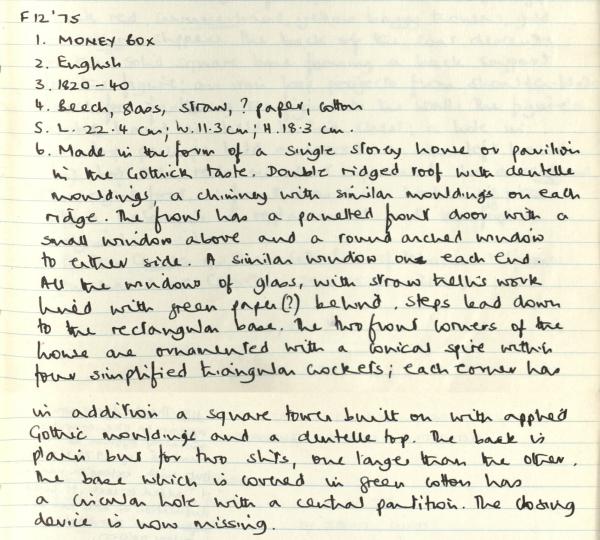 F12'75
1. MONEY BOX
2. English
3. 1820-40
4. Beech, glass, straw, ? paper, cotton
5. L. 22.4 cm; W. 11.3 cm; H. 18.3 cm.
6. Made in the form of a single storey house or pavilion
in the Gothick taste. Double ridged roof with dentelle
mouldings, a chimney with similar mouldings on each
ridge. The front has a panelled front door with a
small window above and a round arched window
to either side. A similar window one each end.
All the windows of glass, with straw trellis work
lined with green paper(?) behind. Steps lead down
to the rectangular base. The two front corners of the
house are ornamented with a conical spire within
four simplified triangular crockets; each corner has
in addition a square tower built on with applied
Gothic mouldings and a dentelle top. The back is
plain but for two slits, one larger than the other.
The base which is covered in green cotton has
a circular hole with a central partition. The closing
device is now missing.